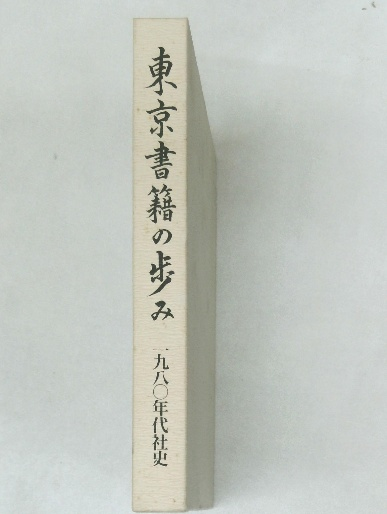 東京書籍の歩み
一九八〇年代社史